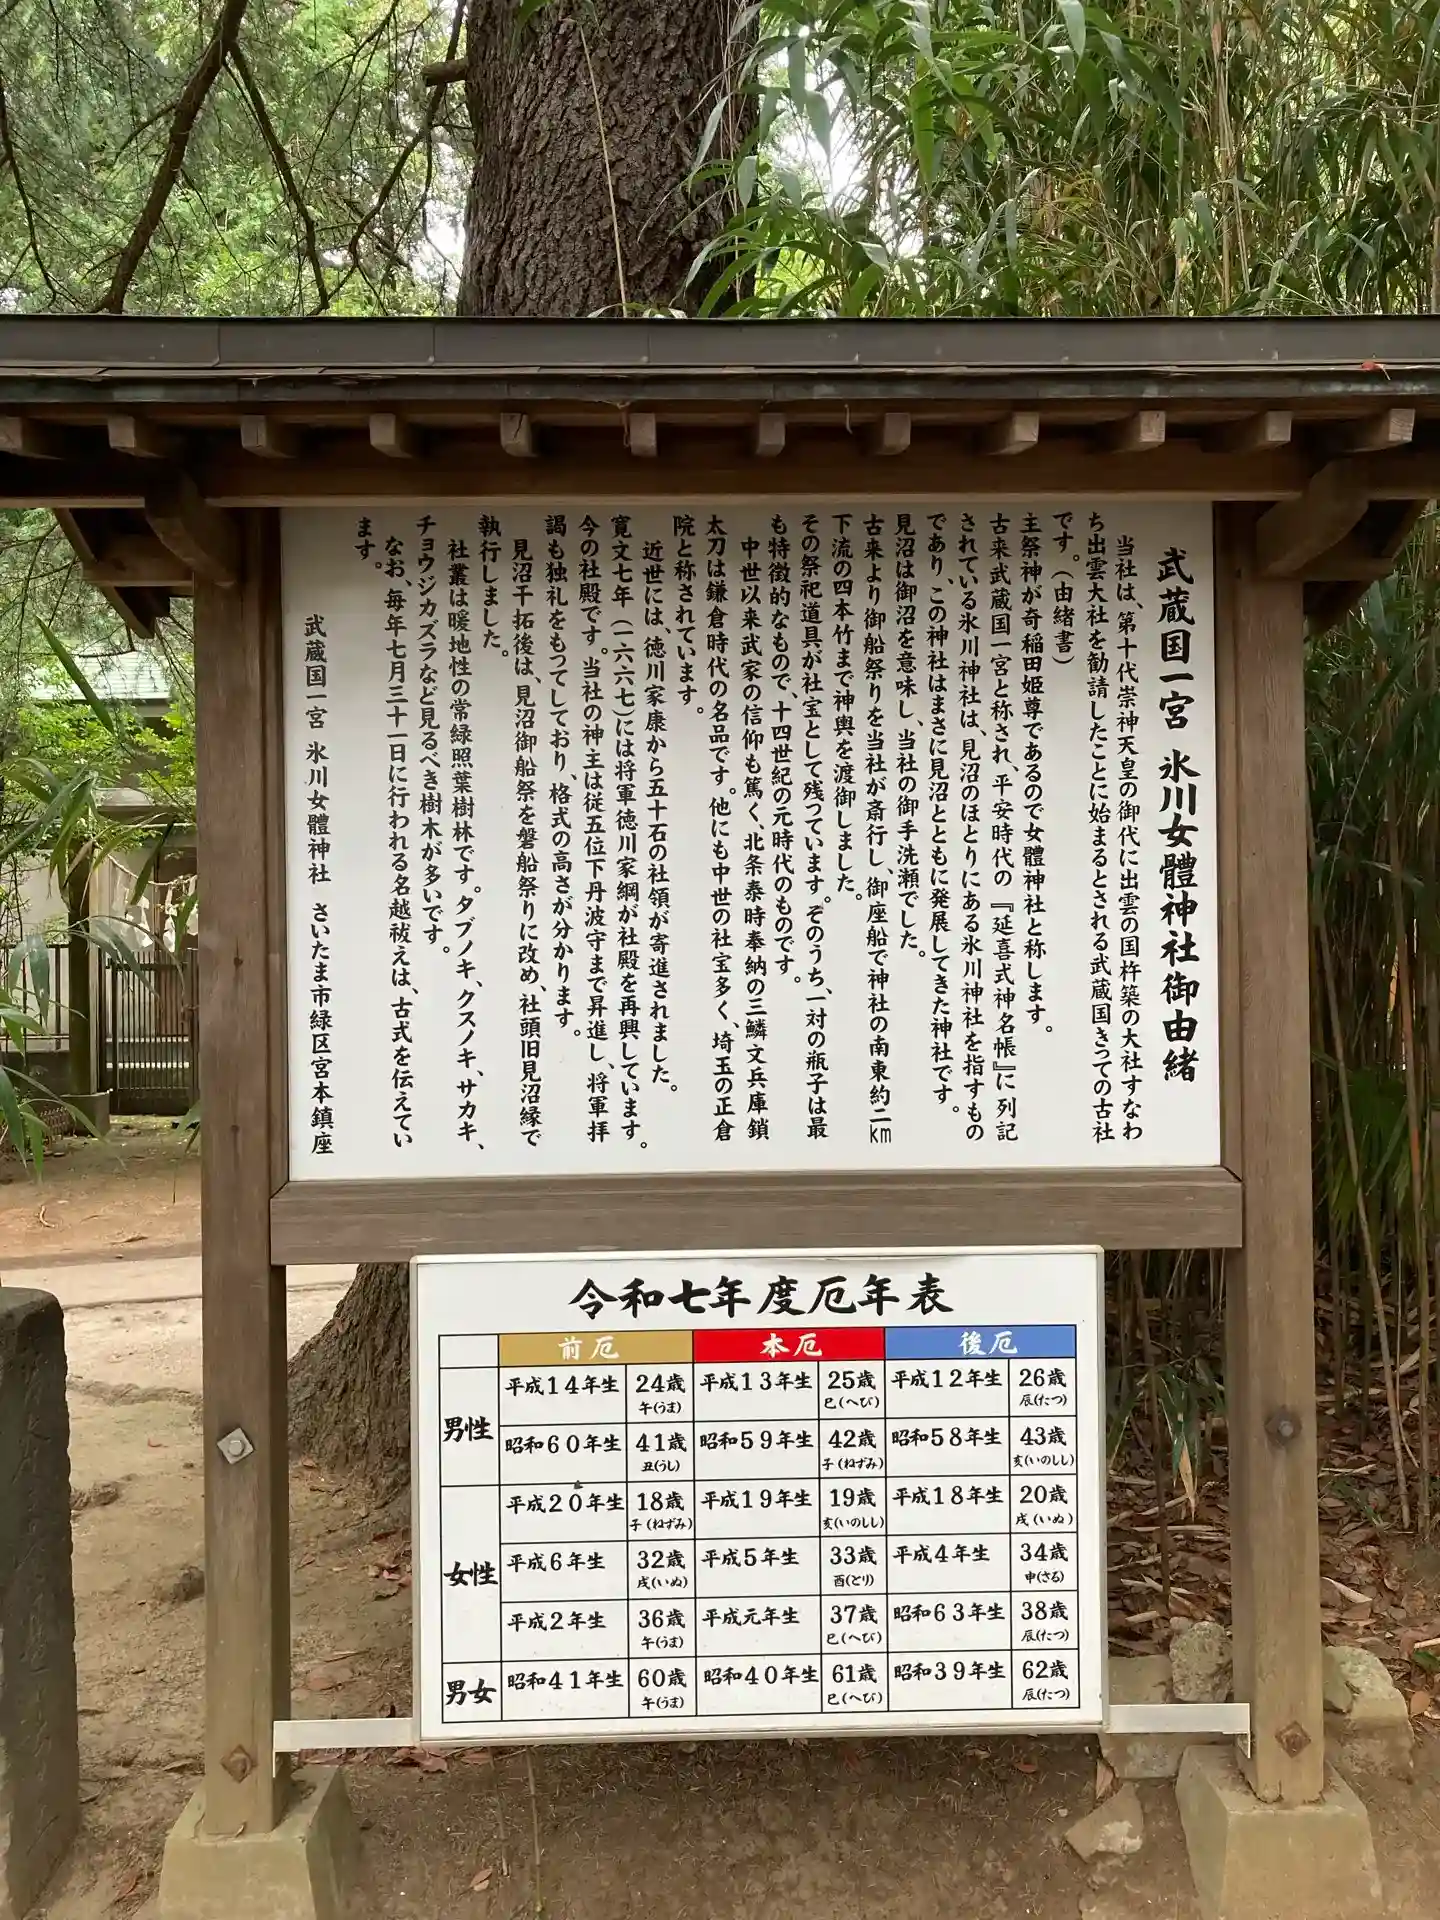 武蔵国一宮 氷川女體神社御由緒
当社は、第十代崇神天皇の御代に出雲の国杵築の大社すなわ
ち出雲大社を勧請したことに始まるとされる武蔵国きっての古社
です。(由緒書)
主祭神が奇稲田姫尊であるので女體神社と称します。
古来武蔵国一宮と称され、平安時代の『延喜式神名帳』に列記
されている氷川神社は、見沼のほとりにある氷川神社を指すもの
であり、この神社はまさに見沼とともに発展してきた神社です。
見沼は御沼を意味し、当社の御手洗瀬でした。
古来より御船祭りを当社が斎行し、御座船で神社の南東約二㎞
下流の四本竹まで神輿を渡御しました。
その祭祀道具が社宝として残っています。そのうち、一対の瓶子は最
も特徴的なもので、十四世紀の元時代のものです。
中世以来武家の信仰も篤く、北条泰時奉納の三鱗文兵庫鎖
太刀は鎌倉時代の名品です。他にも中世の社宝多く、埼玉の正倉
院と称されています。
近世には、徳川家康から五十石の社領が寄進されました。
寛文七年(一六六七)には将軍徳川家綱が社殿を再興しています。
今の社殿です。当社の神主は従五位下丹波守まで昇進し、将軍拝
謁も独礼をもつてしており、格式の高さが分かります。
見沼干拓後は、見沼御船祭を磐船祭りに改め、社頭旧見沼縁で
執行しました。
社叢は暖地性の常緑照葉樹林です。タブノキ、クスノキ、サカキ、
チョウジカズラなど見るべき樹木が多いです。
なお、毎年七月三十一日に行われる名越祓えは、古式を伝えてい
ます。
武蔵国一宮 氷川女體神社 さいたま市緑区宮本鎮座
令和七年度厄年表
前厄 本厄 後厄
男性
平成14年生 24歳 午(うま) 平成13年生 25歳 巳(へび) 平成12年生 26歳 辰(たつ)
昭和60年生 41歳 丑(うし) 昭和59年生 42歳 子(ねずみ) 昭和58年生 43歳 亥(いのしし)
女性
平成20年生 18歳 子(ねずみ) 平成19年生 19歳 亥(いのしし) 平成18年生 20歳 戌(いぬ)
平成6年生 32歳 戌(いぬ) 平成5年生 33歳 酉(とり) 平成4年生 34歳 申(さる)
平成2年生 36歳 午(うま) 平成元年生 37歳 巳(へび) 昭和63年生 38歳 辰(たつ)
男女
昭和41年生 60歳 午(うま) 昭和40年生 61歳 巳(へび) 昭和39年生 62歳 辰(たつ)